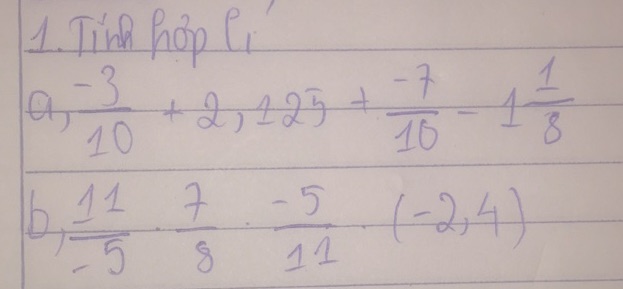 1. Tính hợp lí
a, \frac{-3}{10} + 2,125 + \frac{-7}{10} - 1\frac{1}{8}
b, \frac{11}{-5} . \frac{7}{8} . \frac{-5}{11} . (-2,4)